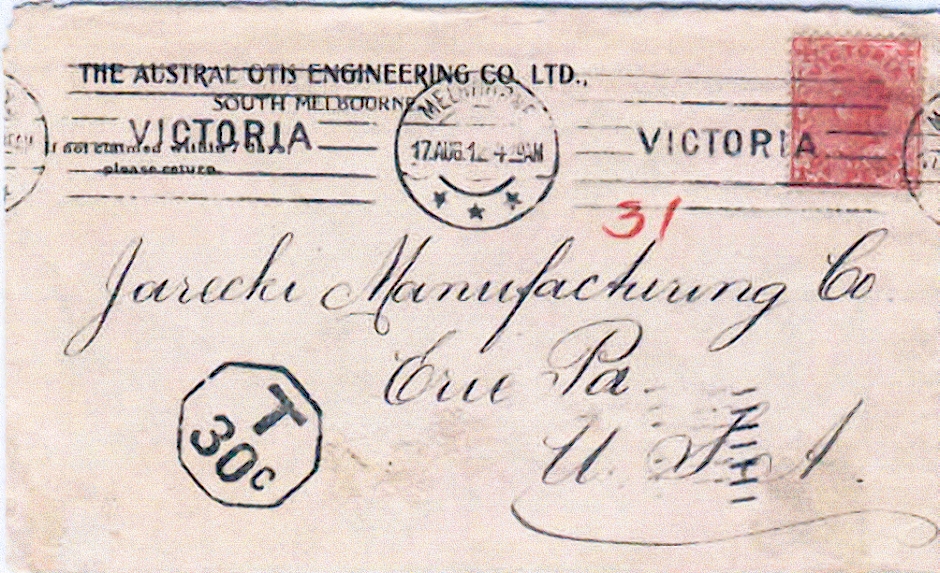 THE AUSTRAL OTIS ENGINEERING CO. LTD.,
SOUTH MELBOURNE
VICTORIA
If not claimed within 7 days
please return.
MELBOURNE
17.AUG.12 4
VICTORIA
31
Jarecki Manufacturing Co
Erie Pa
U. S. A.
T
30c